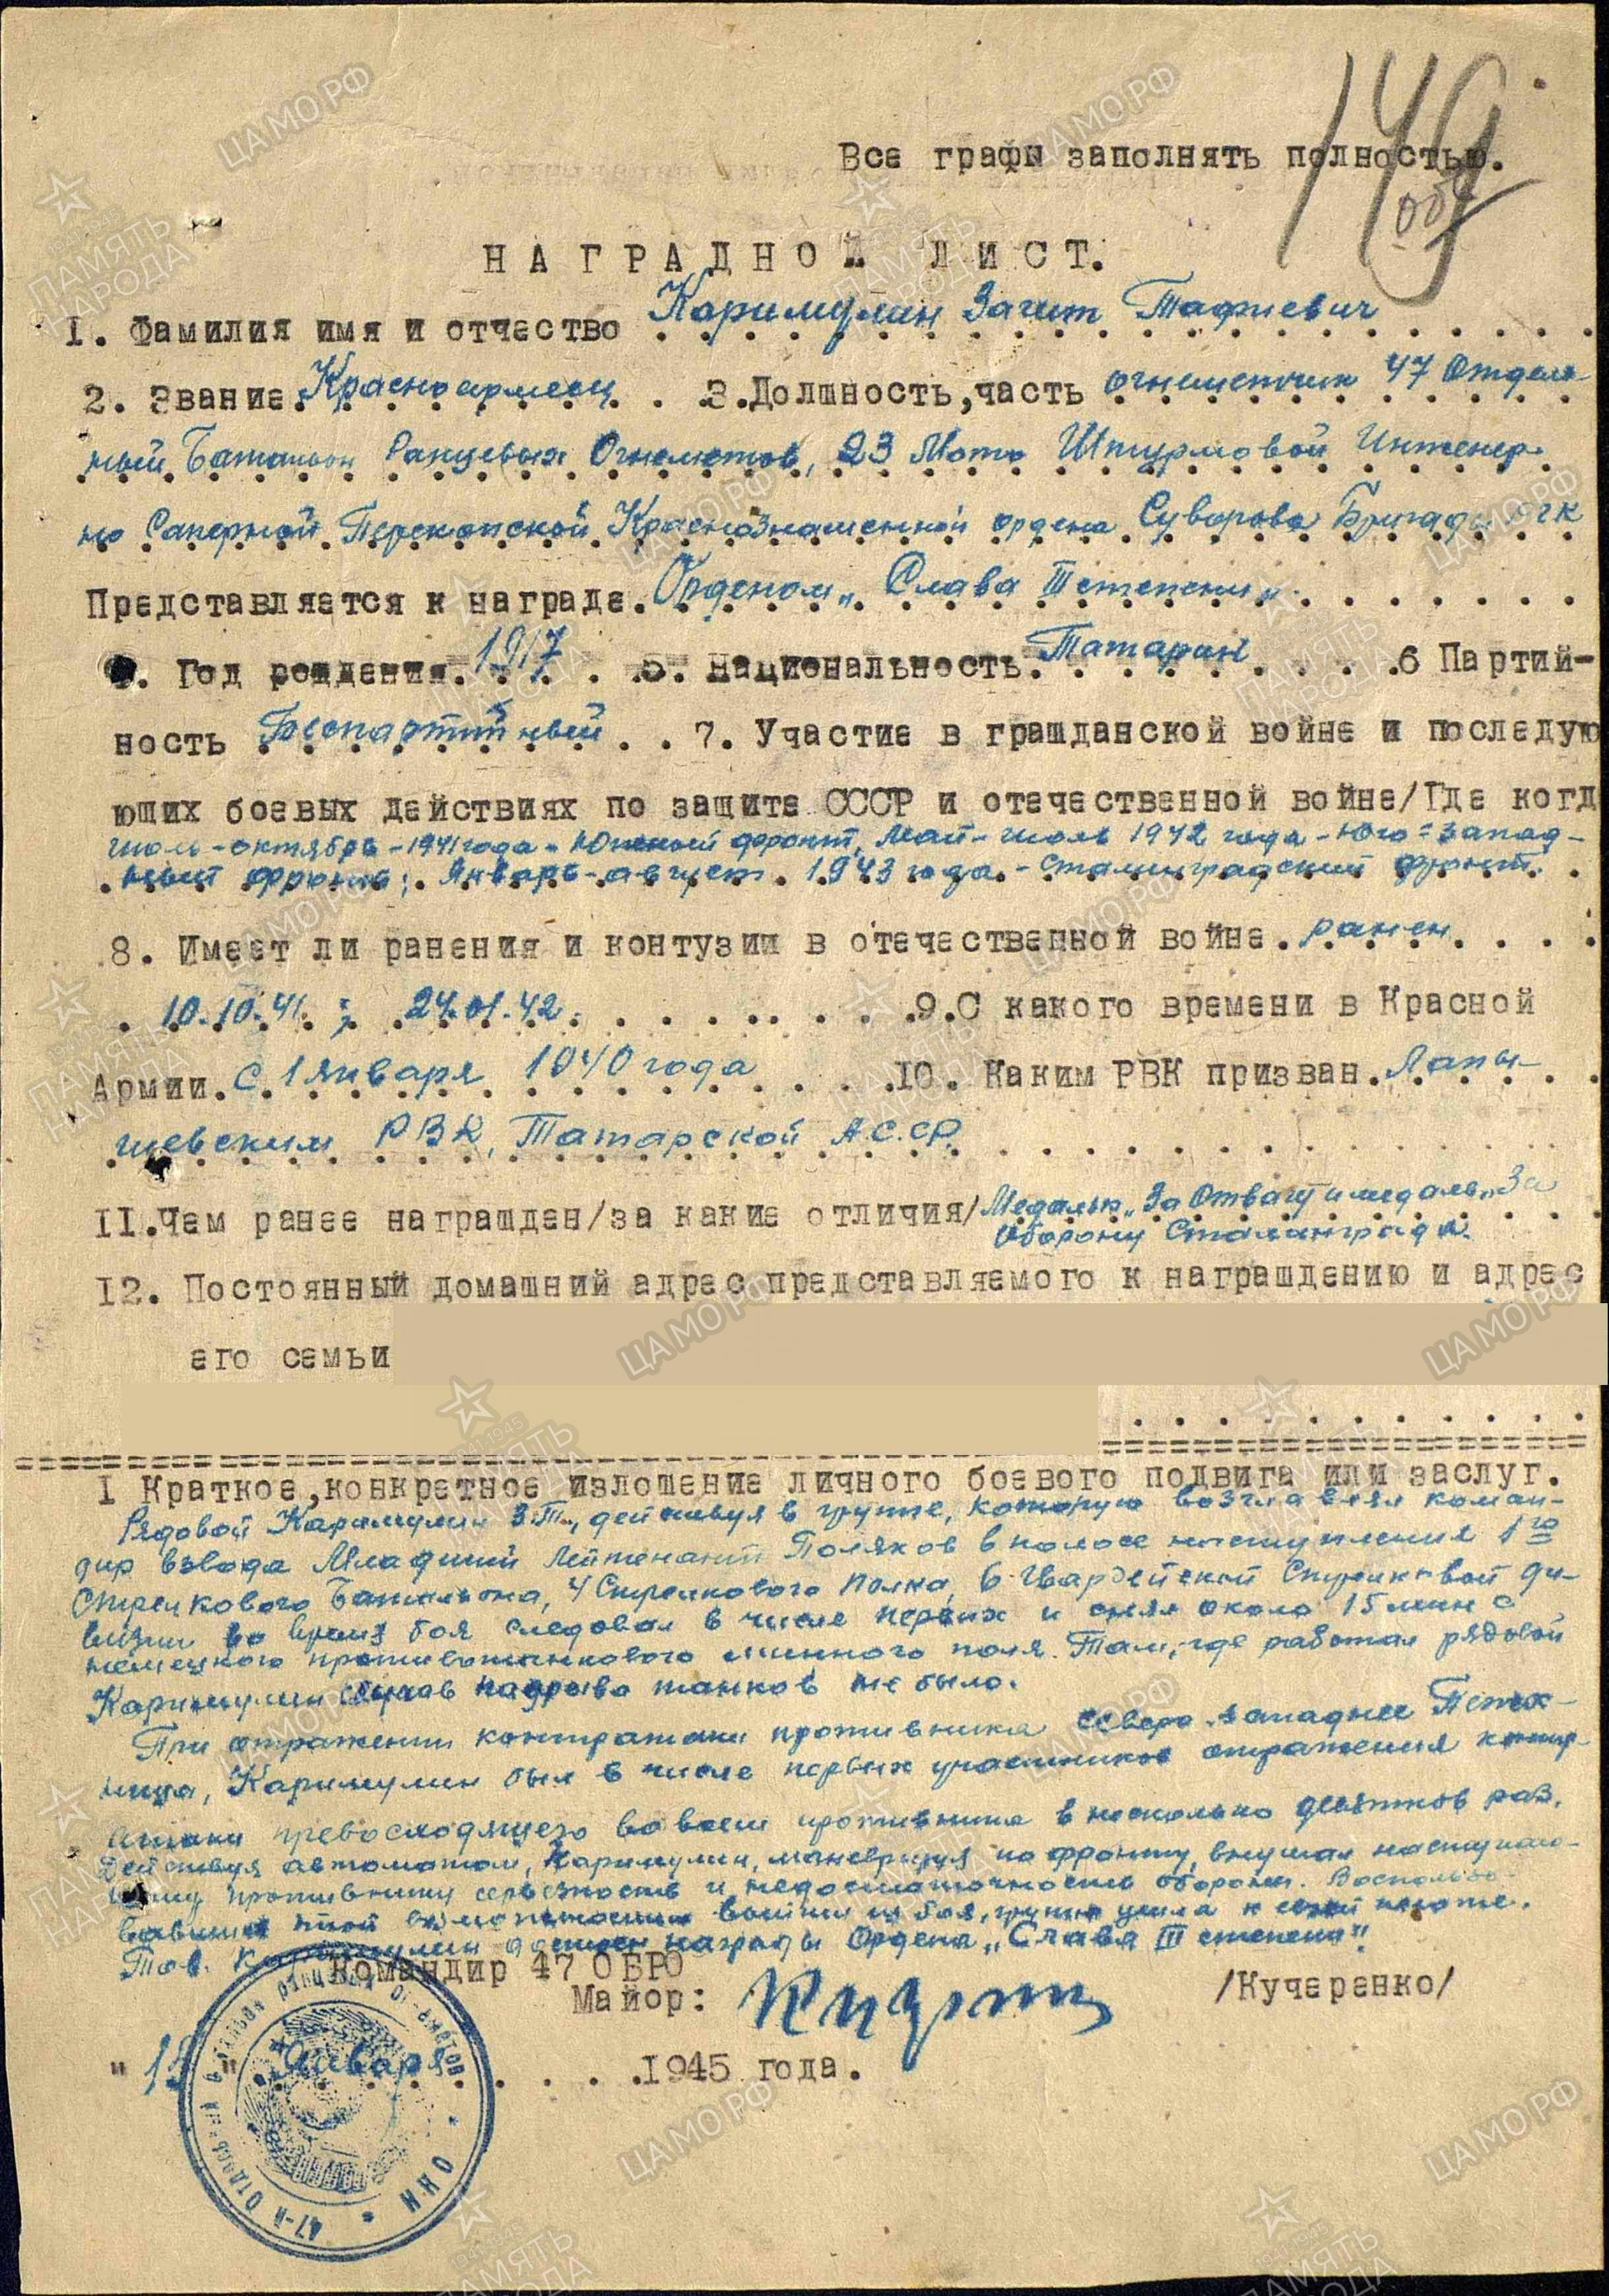 149
об
Все графы заполнять полностью.
НАГРАДНОЙ ЛИСТ.
1. Фамилия имя и отчество Каримулин Загит Тафиевич
2. Звание Красноармеец 3. Должность, часть огнеметчик 47 Отдель-
ный Батальон Ранцевых Огнеметов, 23 Мото Штурмовой Инженер-
но Саперной Перекопской Краснознаменной ордена Суворова Бригады РГК
Представляется к награде Орденом „Слава III степени"
Год рождения 1917 5. Национальность Татарин 6 Партий-
ность Беспартийный 7. Участие в гражданской войне и последую
ющих боевых действиях по защите СССР и отечественной войне/Где когд
июль-октябрь-1941 года - Южный фронт, май-июль 1942 года - Юго-Запад-
ный фронт; Январь-август 1943 года - Сталинградский фронт.
8. Имеет ли ранения и контузии в отечественной войне. ранен
10.10.41; 24.01.42. 9. С какого времени в Красной
Армии. с 1 января 1940 года 10. Каким РВК призван. Лапы-
шевским РВК, Татарской А.С.СР.
11. Чем ранее награжден/за какие отличия/ Медалью „За Отвагу" и медаль „За
оборону Сталинграда.
12. Постоянный домашний адрес представляемого к награждению и адрес
его семьи
I Краткое, конкретное изложение личного боевого подвига или заслуг.
Рядовой Каримулин З.Т., действуя в группе, которую возглавлял коман-
дир взвода Младший Лейтенант Поляков в полосе наступления 1го
Стрелкового Батальона, 4 Стрелкового Полка, 6 Гвардейской Стрелковой ди-
визии во время боя следовал в числе первых и снял около 15 мин с
немецкого противотанкового минного поля. Там, где работал рядовой
Каримулин случаев подрыва танков не было.
При отражении контратаки противника северо-западнее Петек-
ница, Каримулин был в числе первых участников отражения контр-
атаки превосходящего во всем противника в несколько десятков раз.
Действуя автоматом, Каримулин, маневрируя по фронту, внушал наступаю-
щему противнику серьезность и недостаточность обороны. Воспользо-
вавшись этой возможностью выйти из боя, группа ушла к своей пехоте.
Тов. Каримулин достоен награды Ордена „Слава III степени"
Командир 47 ОБРО
Майор: /Кучеренко/
"13" Января 1945 года.
47-й Отдельный батальон ранцевых огнеметов
НКО